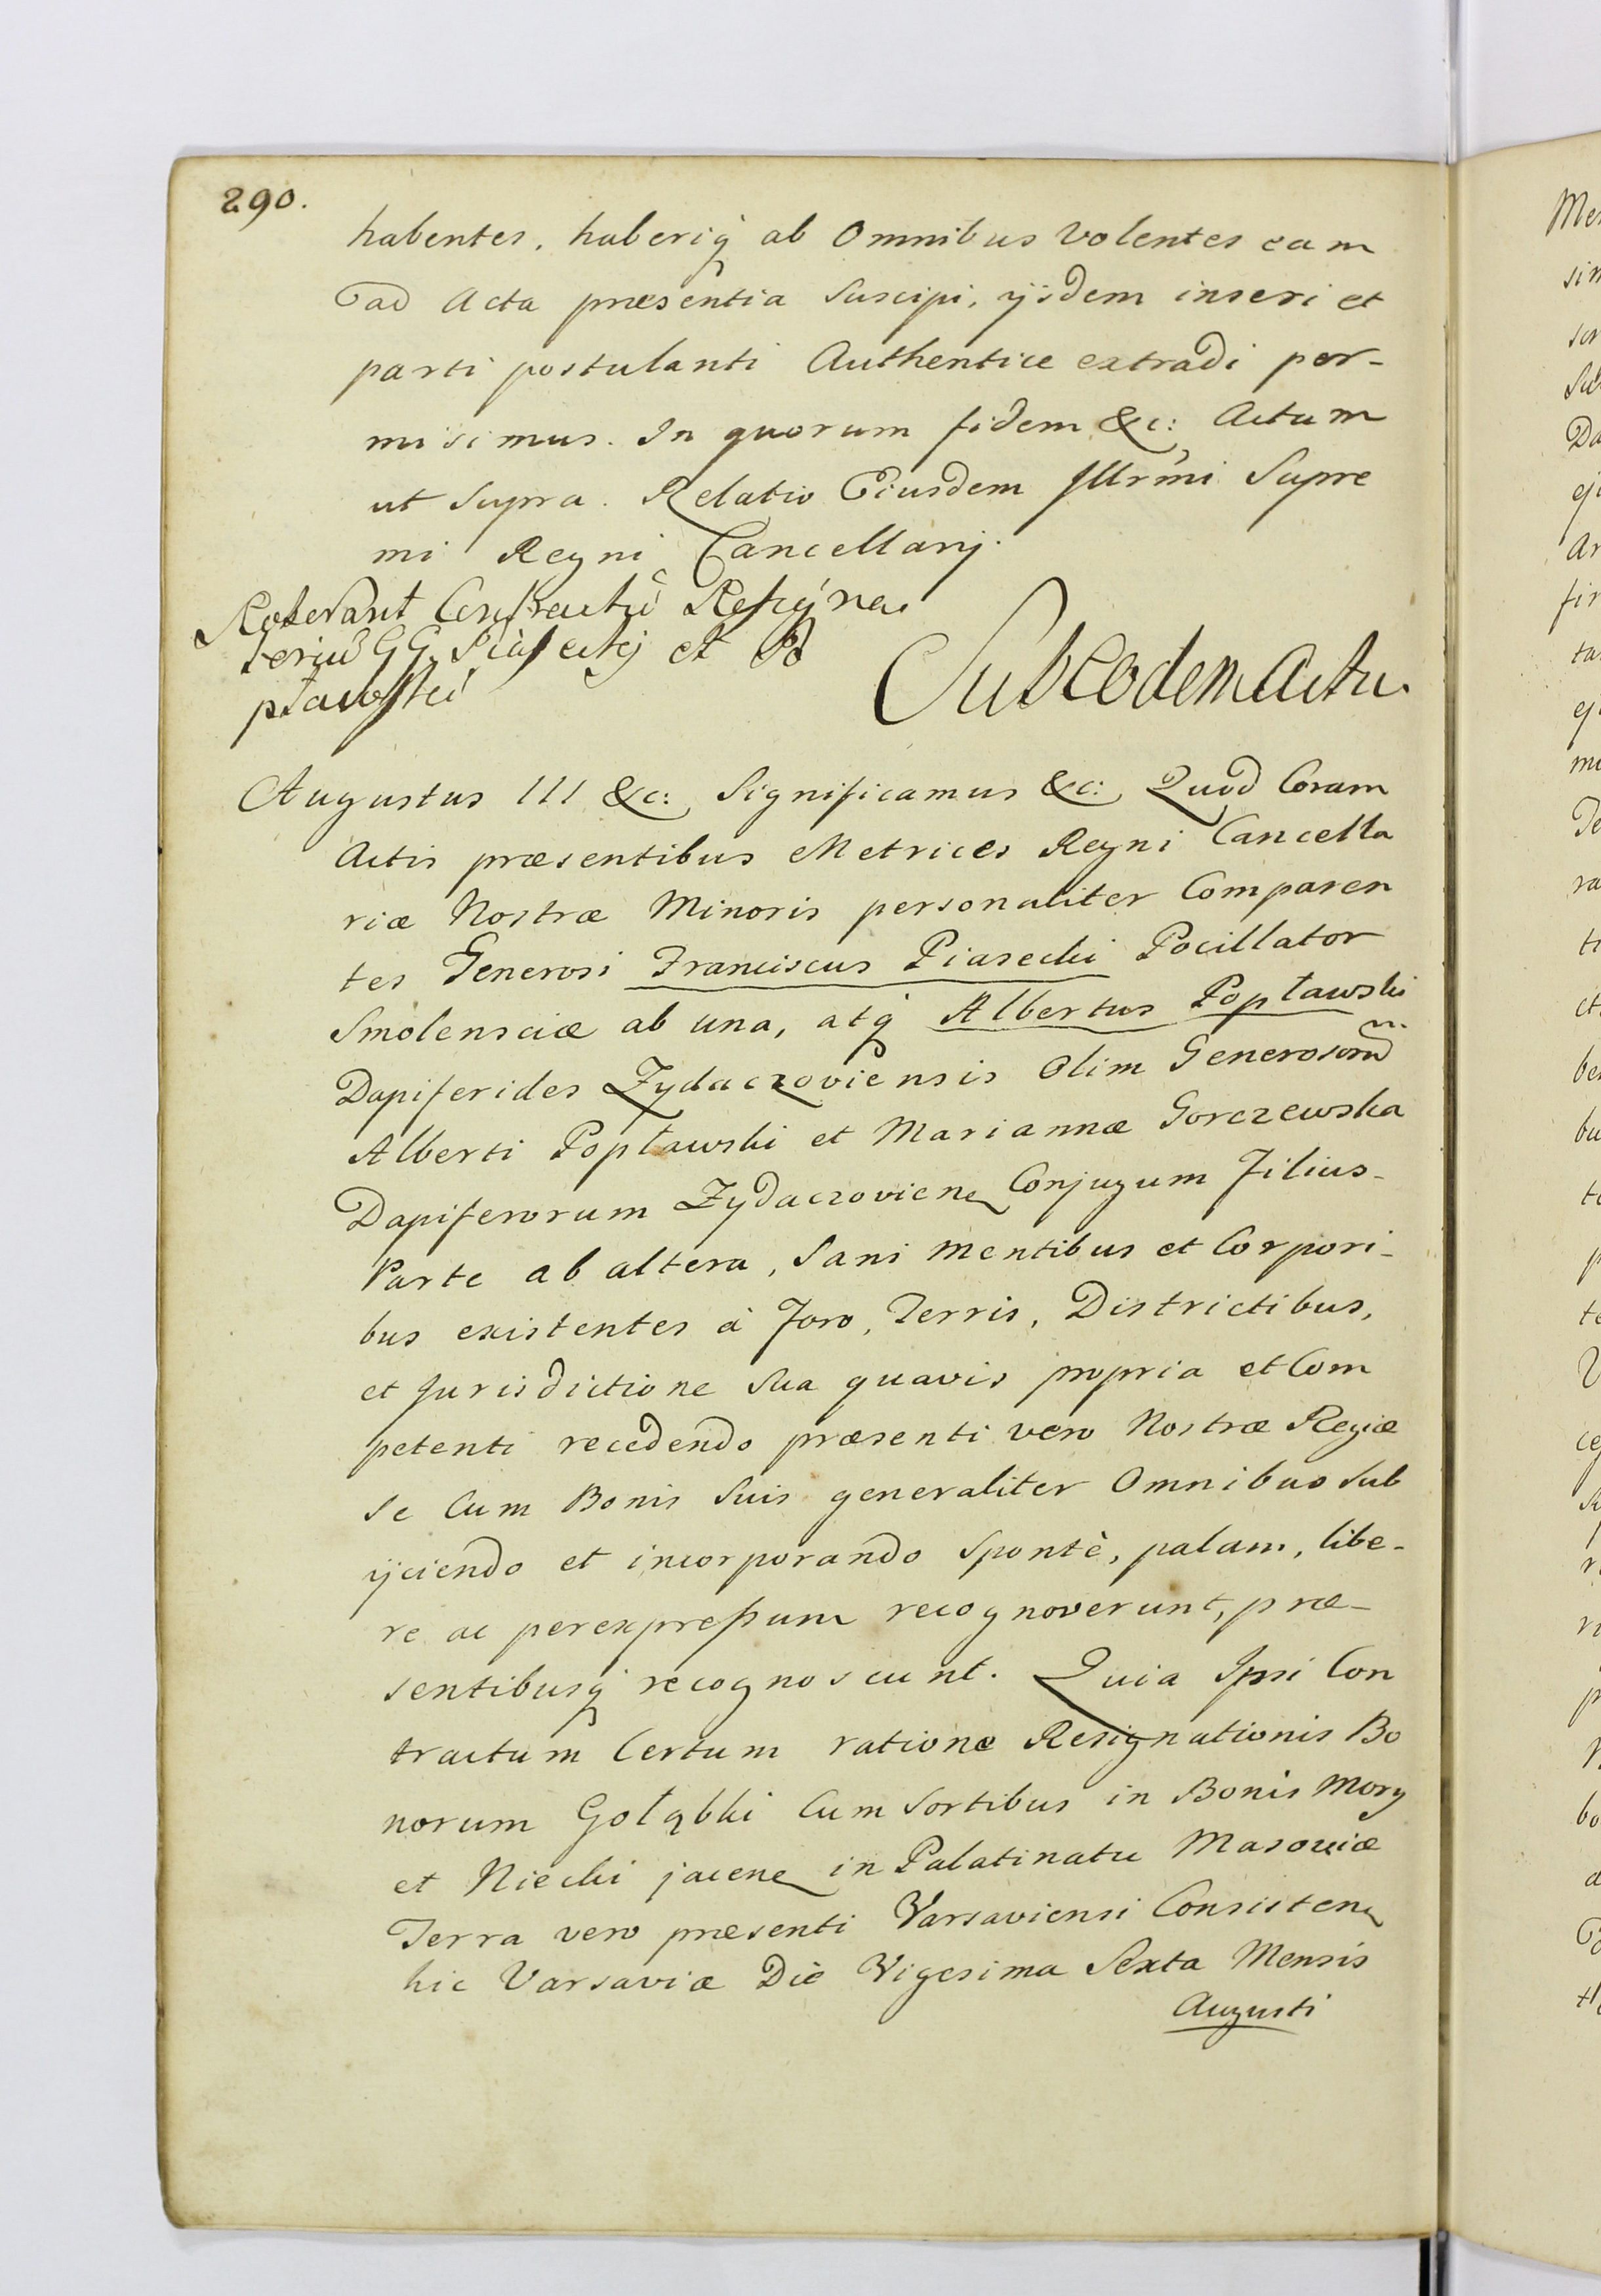 290.
habentes, haberiq́ ab Omnibus Volentes eam
ad Acta præsentia Suscipi, ijsdem inseri et
parti postulanti Authentice extradi per-
misimus. In quorum fidem &c: Actum
ut Supra. Relatio Eiusdem Illrmi Supre
mi Regni Cancellarij.
Roborant Contractū Resigna
torium GG. Piaseckij et Po
pławski
Sub Eodem Actu.
Augustus III &c: Significamus &c: Quod Coram
Actis præsentibus Metrices Regni Cancella
riæ Nostræ Minoris personaliter Comparen
tes Generosi Franciscus Piasecki Pocillator
Smolensciæ ab una, atq́ Albertus Popławski
Dapiferides Zydaczoviensis Olim Generosorum
Alberti Popławski et Mariannæ Gorczewska
Dapiferorum Zydaczovien Conjugum Filius-
Parte ab altera, Sani mentibus et Corpori-
bus existentes à Foro, Terris, Districtibus,
et Jurisdictione Sua quavis propria et Com
petenti recedendo præsenti vero Nostræ Regiæ
Se Cum Bonis Suis generaliter Omnibus Sub
ijciendo et incorporando Spontè, palam, libe-
re ac perexpressum recognoverunt, præ-
sentibusq́ recognoscunt. Quia Ipsi Con
tractum Certum ratione Resignationis Bo
norum Gołąbki Cum Sortibus in Bonis Mory
et Niecki jacen in Palatinatu Masoviæ
Terra vero præsenti Varsaviensi Consisten
hic Varsaviæ Die Vigesima Sexta Mensis
Augusti